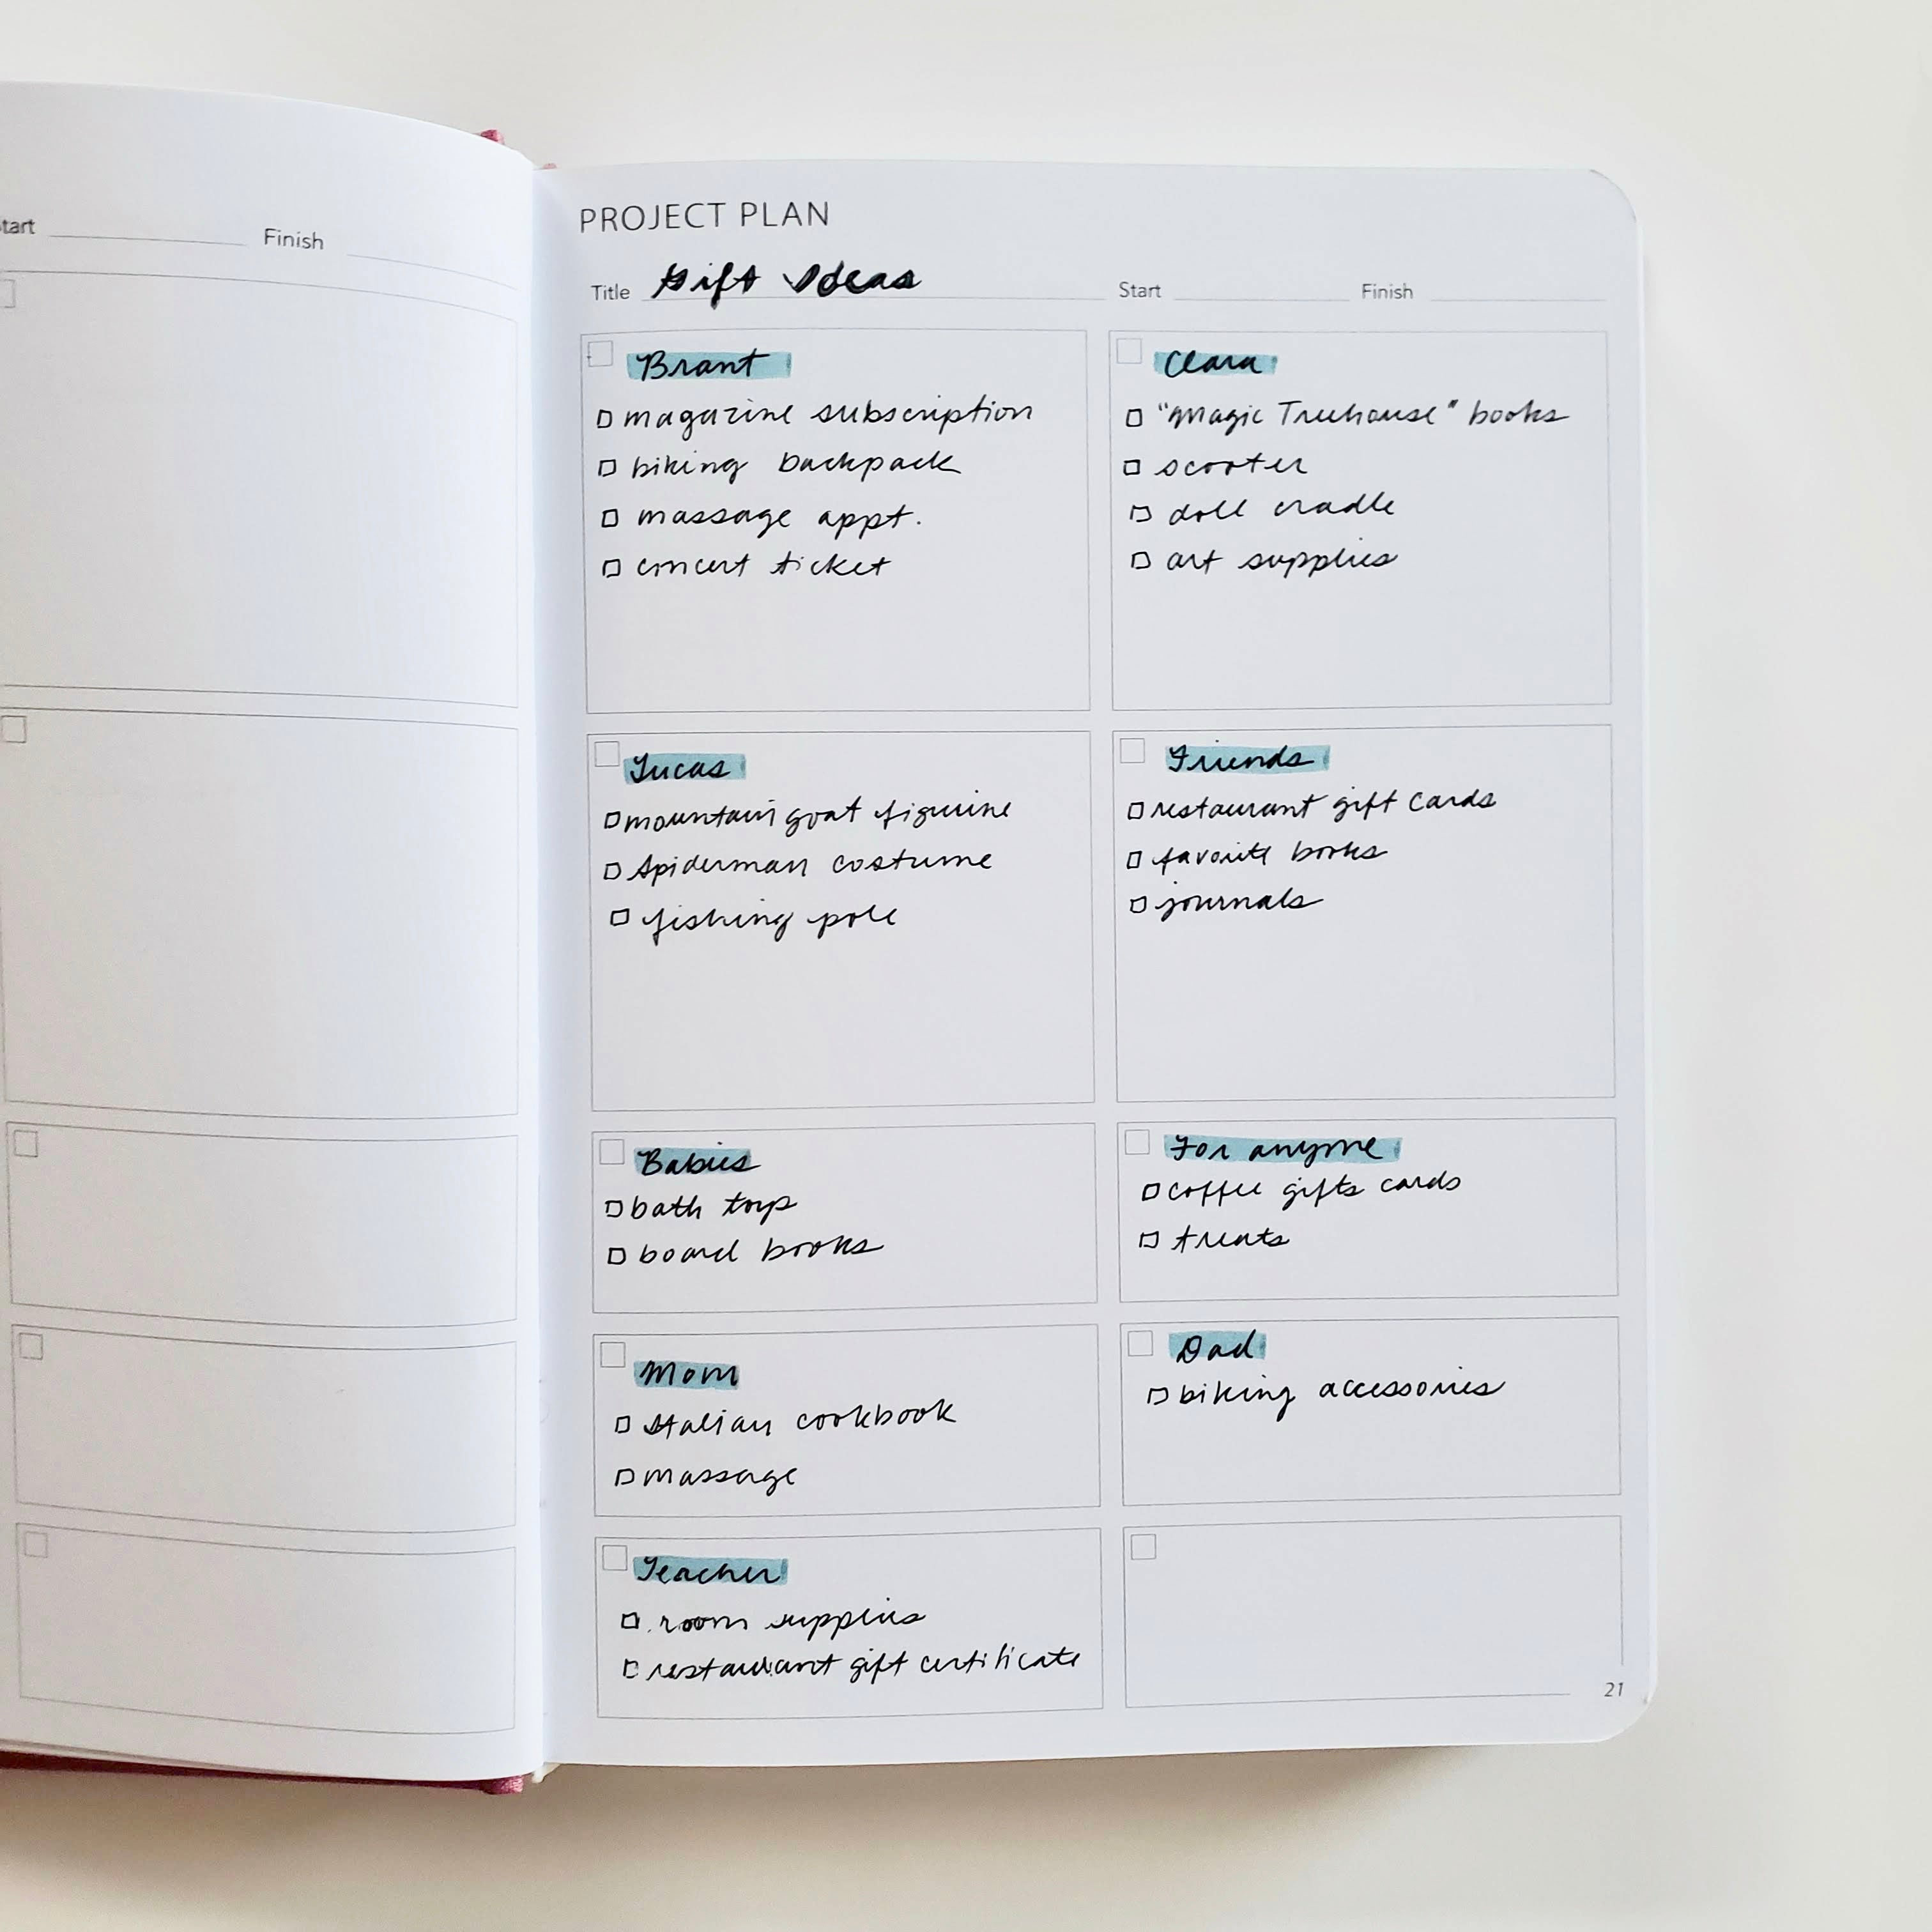 tart Finish
PROJECT PLAN
Title Gift Ideas Start Finish
Brant
magazine subscription
biking backpack
massage appt.
concert ticket
Clara
"Magic Treehouse" books
scooter
doll cradle
art supplies
Lucas
mountain goat figurine
Spiderman costume
fishing pole
Friends
restaurant gift cards
favorite books
journals
Babies
bath toys
board books
For anyone
coffee gifts cards
treats
Mom
Italian cookbook
massage
Dad
biking accessories
Teacher
room supplies
restaurant gift certificate
21